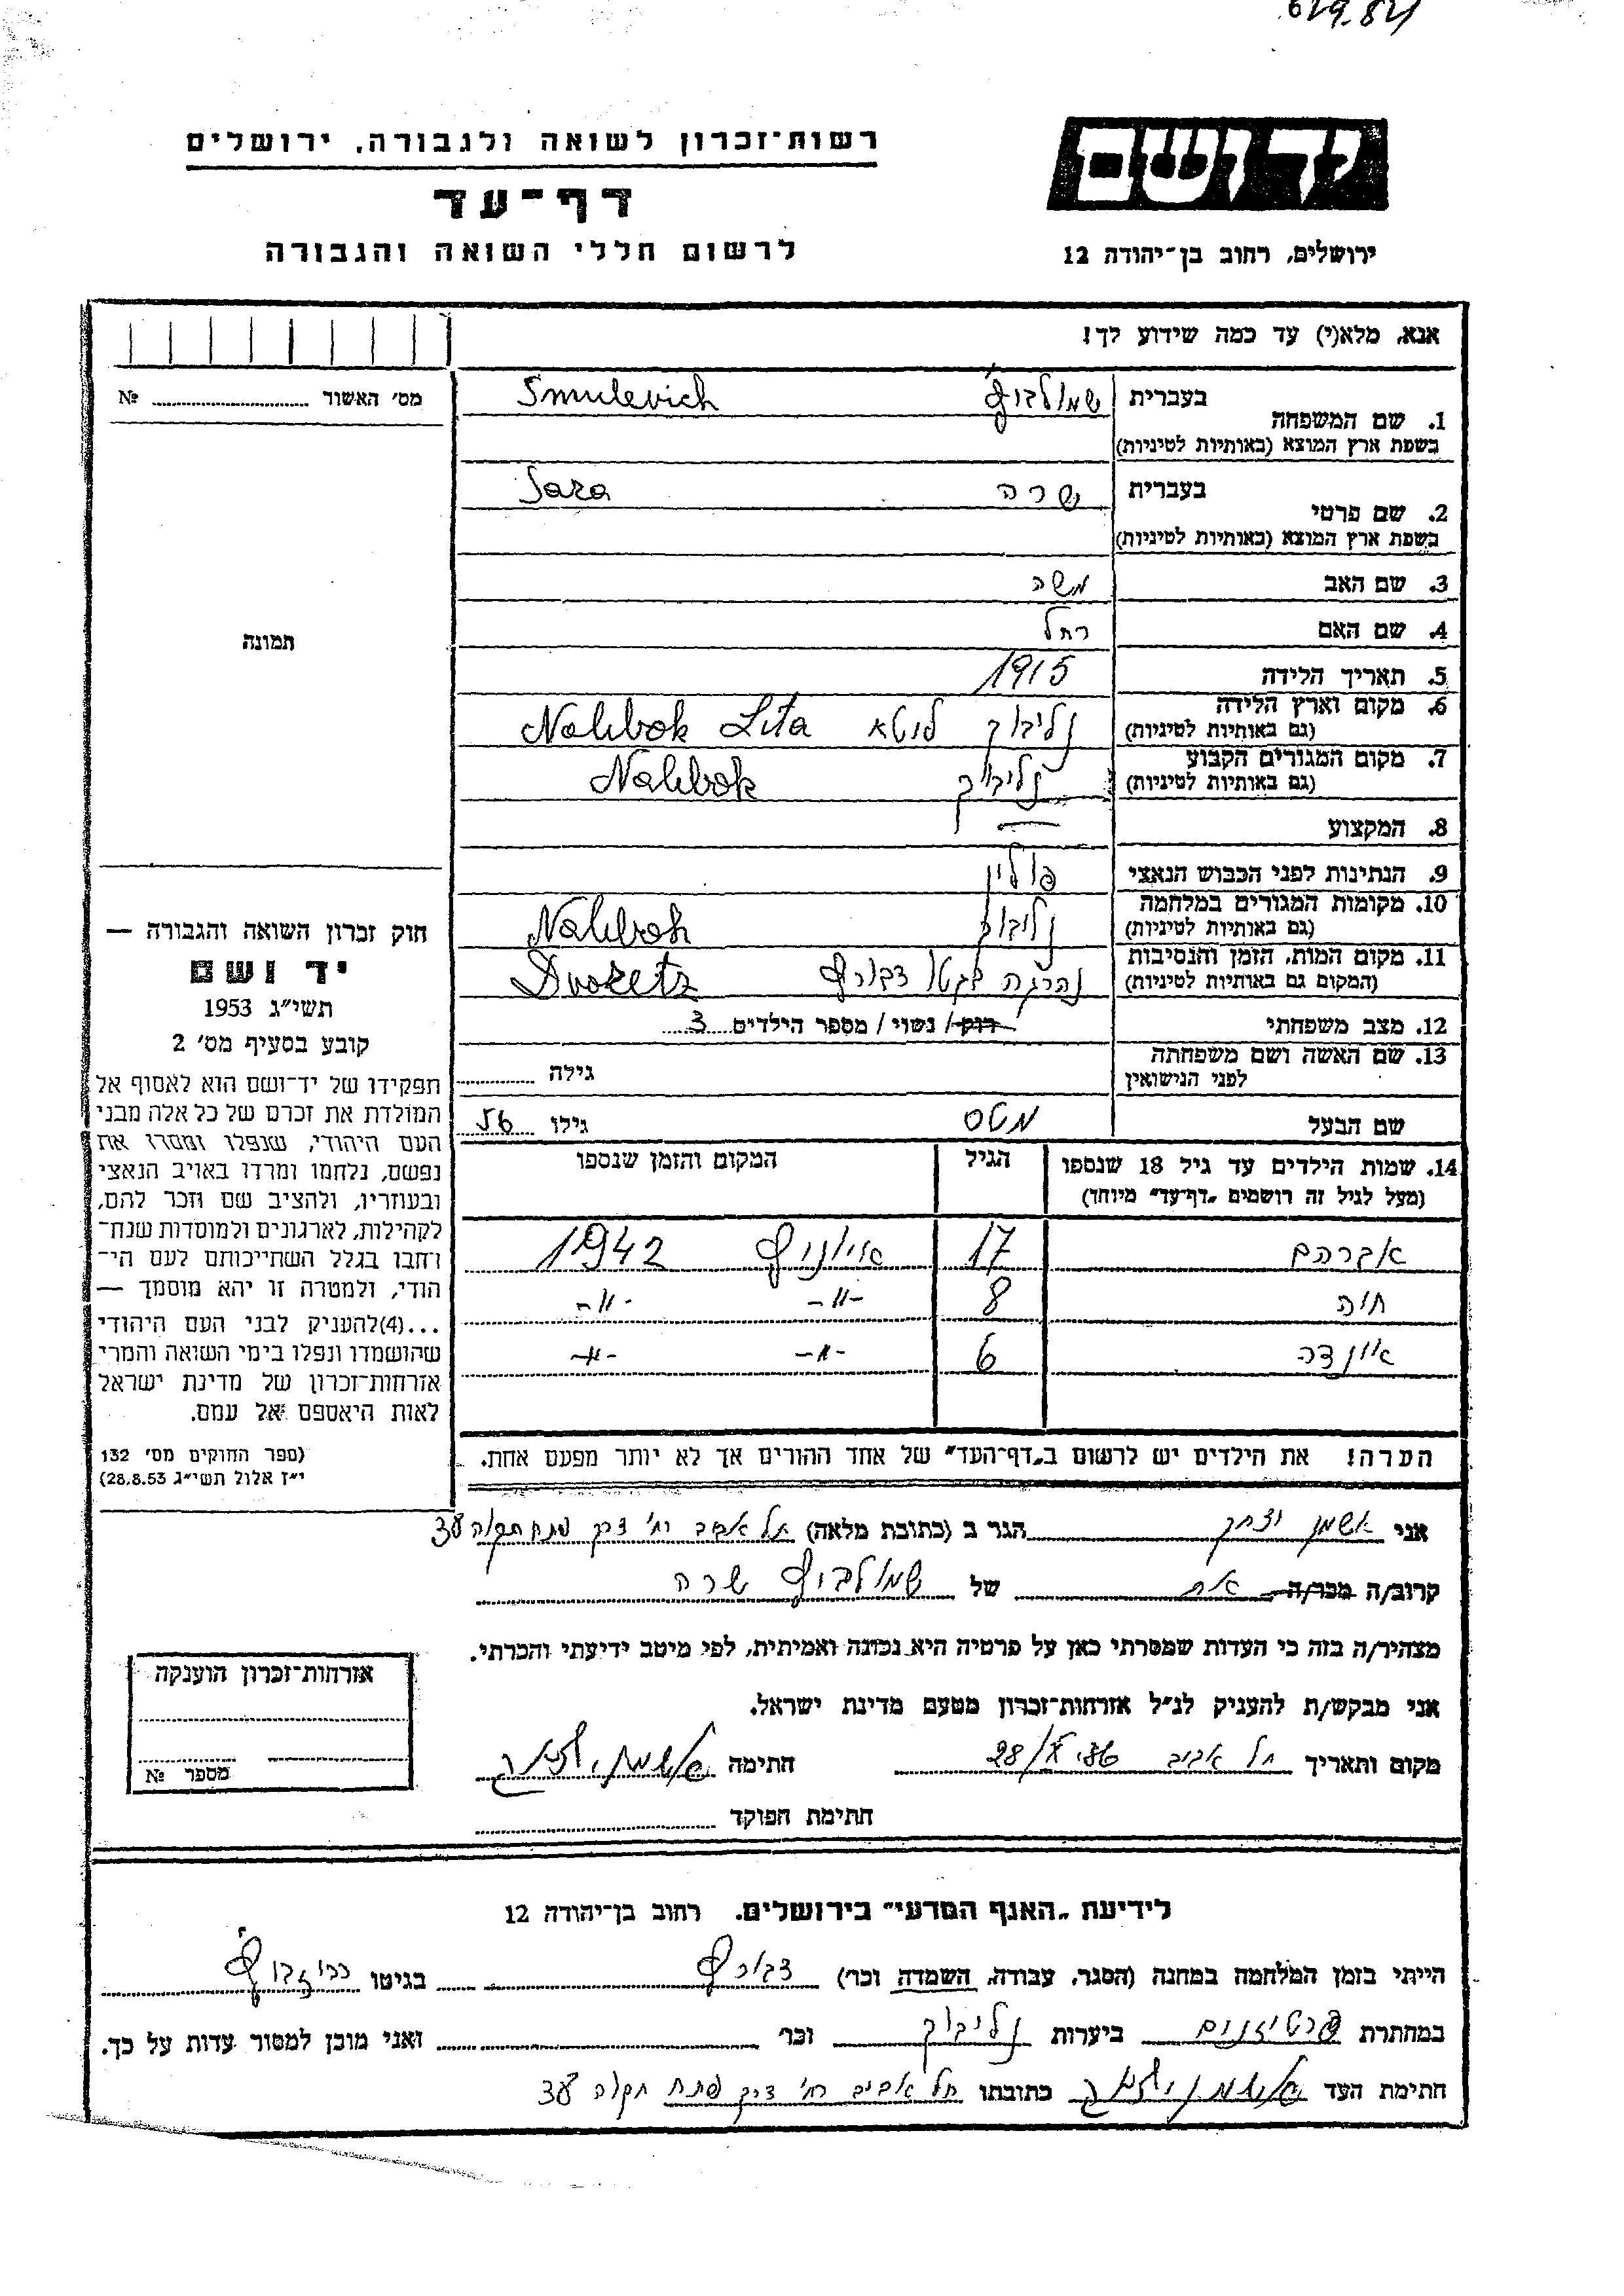 629.84
רשות־זכרון לשואה ולגבורה, ירושלים
דף־עד
לרשום חללי השואה והגבורה
יד ושם
ירושלים, רחוב בן־יהודה 12
אנא, מלא(י) עד כמה שידוע לך!
מס׳ האשור № 
1. שם המשפחה
בעברית שמולביץ Smulevich
בשפת ארץ המוצא (באותיות לטיניות)
2. שם פרטי
בעברית שרה Sara
בשפת ארץ המוצא (באותיות לטיניות)
3. שם האב משה
4. שם האם רחל
5. תאריך הלידה 1915
6. מקום וארץ הלידה
(גם באותיות לטיניות) נליבוק ליטא Nalibok Lita
7. מקום המגורים הקבוע
(גם באותיות לטיניות) נליבוק Nalibok
8. המקצוע —
9. הנתינות לפני הכבוש הנאצי פולין
10. מקומות המגורים במלחמה
(גם באותיות לטיניות) נליבוק Nalibok
11. מקום המות, הזמן והנסיבות
(המקום גם באותיות לטיניות) נהרגה בגטו דבורץ Dvoretz
12. מצב משפחתי רווק/ נשוי/ מספר הילדים 3
13. שם האשה ושם משפחתה
לפני הנישואין גילה
שם הבעל מטס גילו 56
14. שמות הילדים עד גיל 18 שנספו הגיל המקום והזמן שנספו
(מעל לגיל זה רושמים „דף־עד” מיוחד)
אברהם 17 1942
חיה 8 -״- -״-
6 -״- -״-
הערה! את הילדים יש לרשום ב„דף־העד” של אחד ההורים אך לא יותר מפעם אחת.
תמונה
חוק זכרון השואה והגבורה —
יד ושם
תשי״ג 1953
קובע בסעיף מס׳ 2
תפקידו של יד־ושם הוא לאסוף אל
המולדת את זכרם של כל אלה מבני
העם היהודי, שנפלו ומסרו את
נפשם, נלחמו ומרדו באויב הנאצי
ובעוזריו, ולהציב שם וזכר להם,
לקהילות, לארגונים ולמוסדות שנח־
רחבו בגלל השתייכותם לעם הי־
הודי, ולמטרה זו יהא מוסמך —
...(4)להעניק לבני העם היהודי
שהושמדו ונפלו בימי השואה והמרי
אזרחות־זכרון של מדינת ישראל
לאות היאספם אל עמם.
(ספר החוקים מס׳ 132
י״ז אלול תשי״ג 28.8.53)
אני אשמן יצחק הגר ב (כתובת מלאה) תל אביב רח׳ דרך פתח תקוה 34
קרוב/ה מכר/ה אח של שמולביץ שרה
מצהיר/ה בזה כי העדות שמסרתי כאן על פרטיה היא נכונה ואמיתית, לפי מיטב ידיעתי והכרתי.
אני מבקש/ת להעניק לנ״ל אזרחות־זכרון מטעם מדינת ישראל.
מקום ותאריך תל אביב חתימה אשמן יצחק
חתימת הפוקד
אזרחות־זכרון הוענקה
מספר №
לידיעת „האגף המדעי” בירושלים. רחוב בן־יהודה 12
הייתי בזמן המלחמה במחנה (הסגר, עבודה, השמדה וכר) דבורץ בגיטו
במחתרת פרטיזנים ביערות נליבוק וכר ואני מוכן למסור עדות על כך.
חתימת העד אשמן יצחק כתובתו תל אביב רח׳ דרך פתח תקוה 34